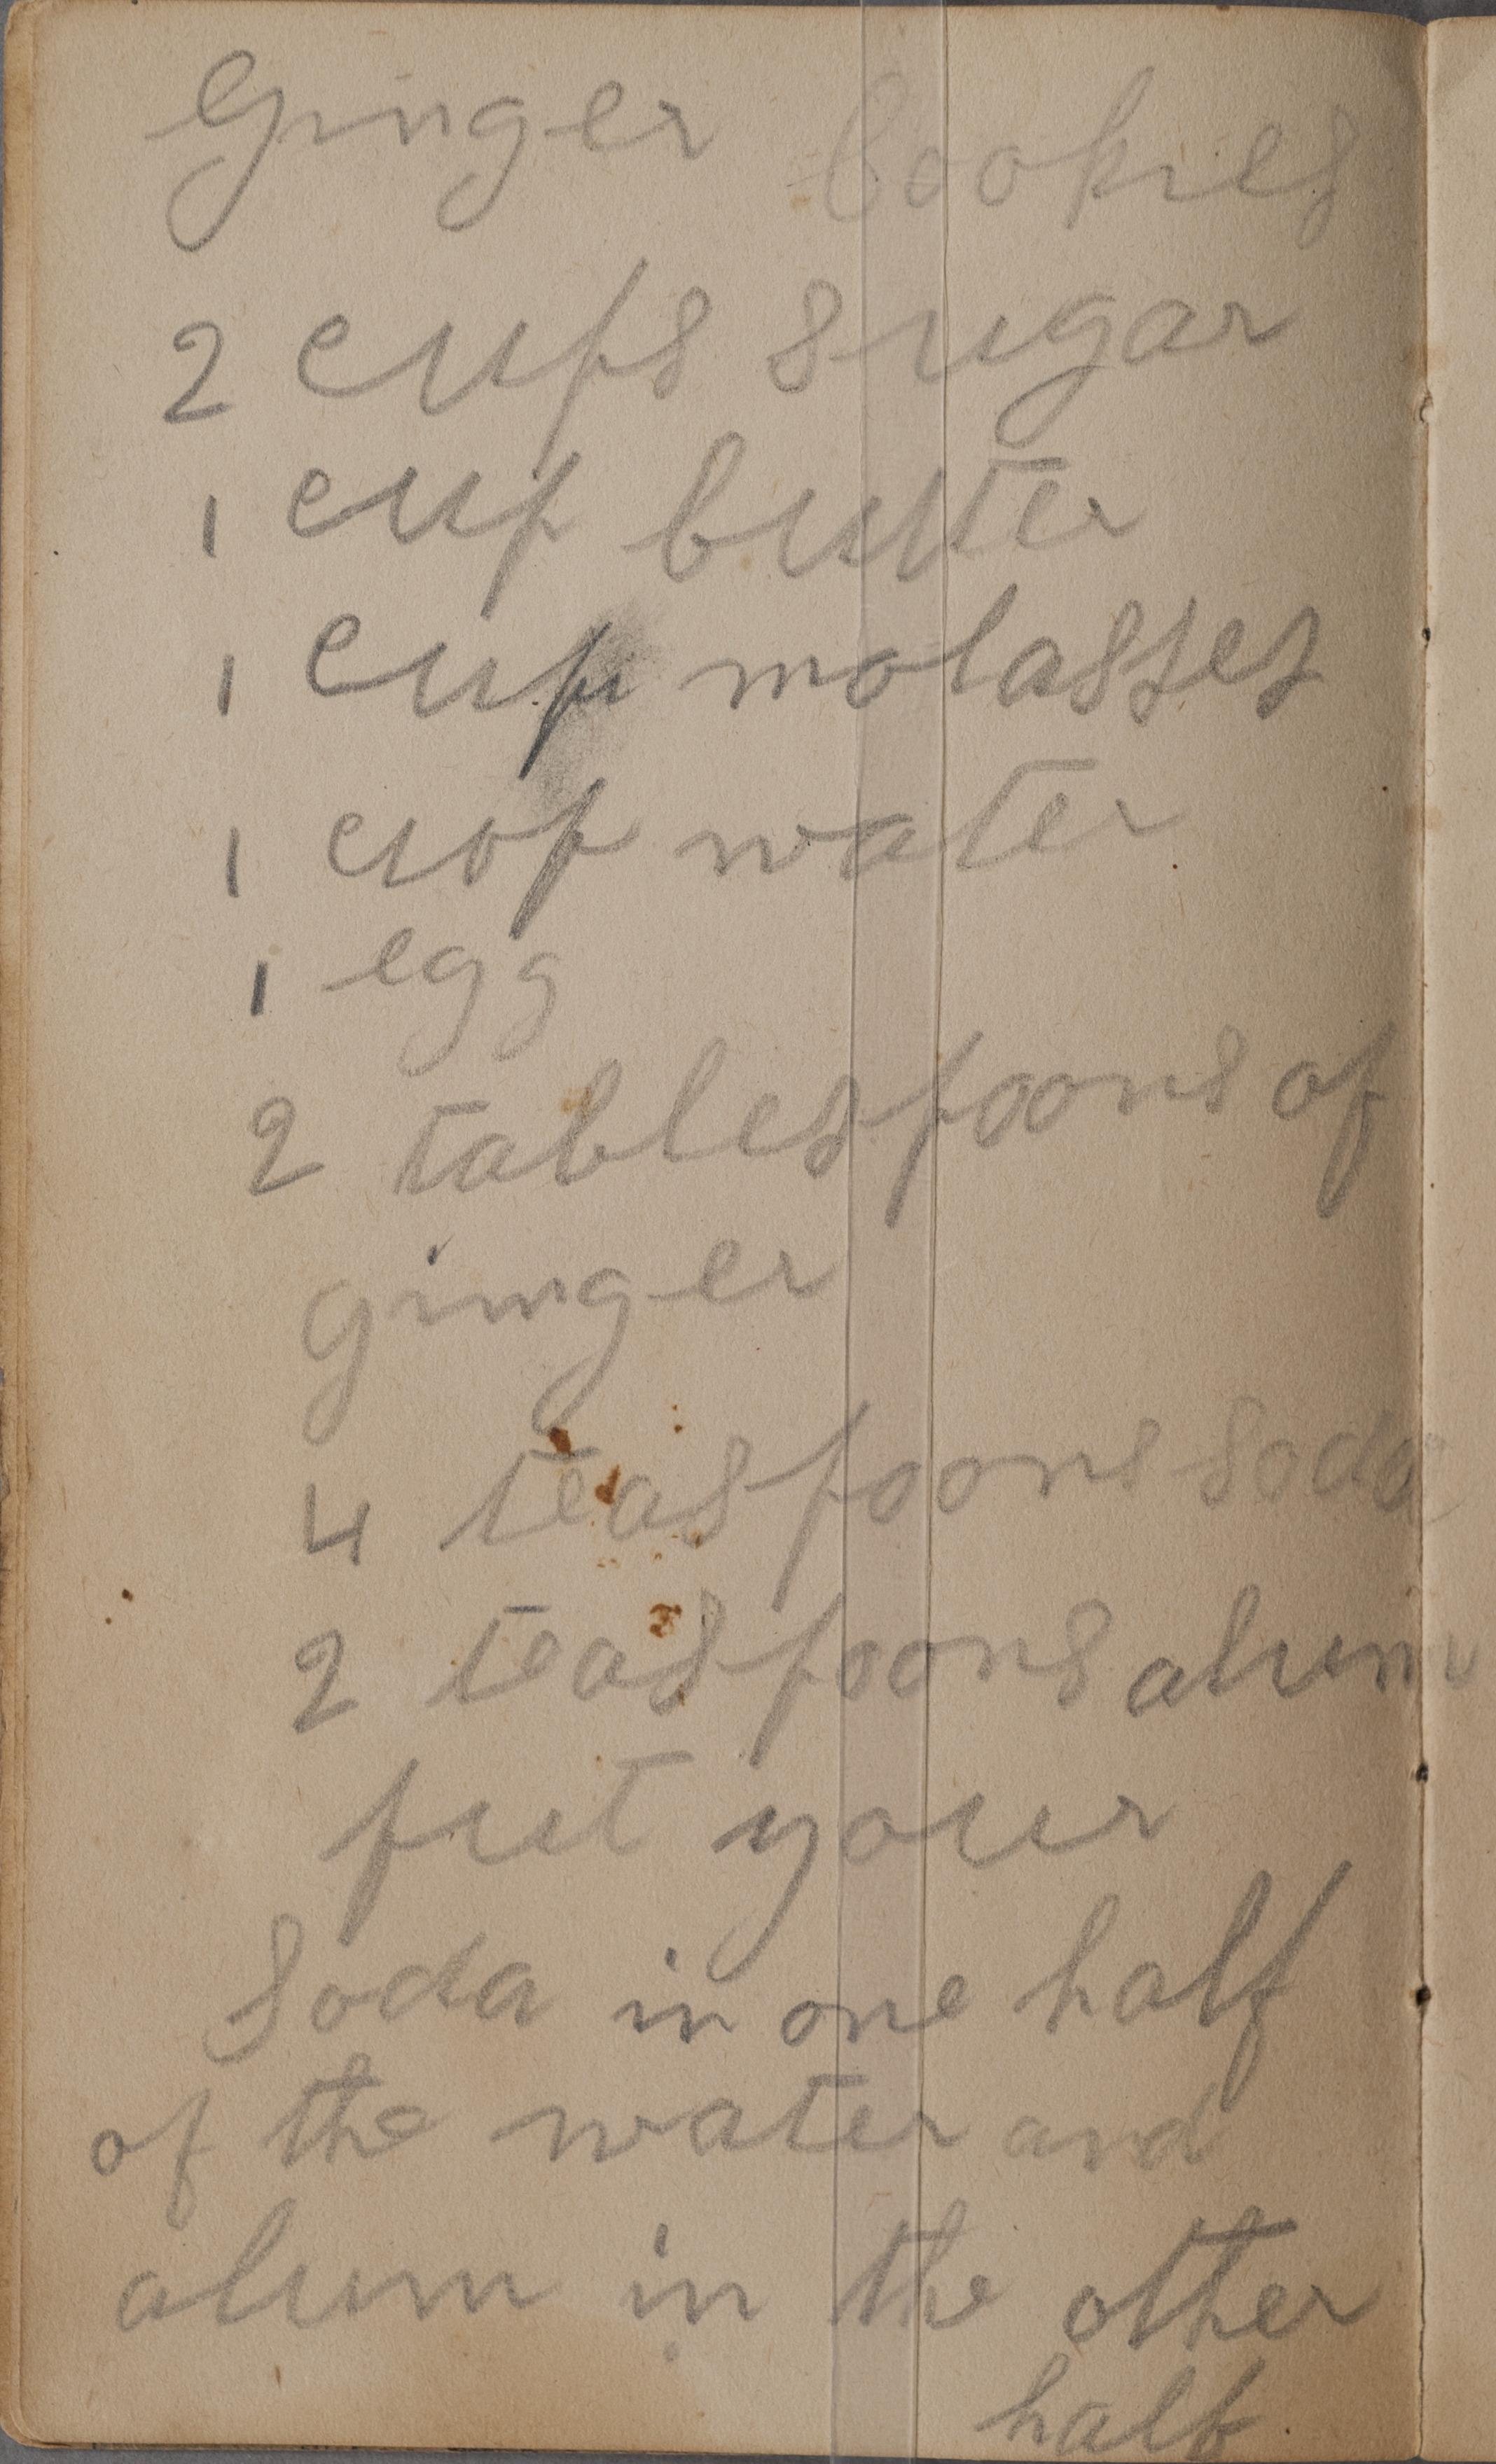 Ginger Cookies
2 cups sugar
1 cup butter
1 cup molasses
1 cup water
1 egg
2 tablespoons of
ginger
4 teaspoons soda
2 teaspoons alum
put your
soda in one half
of the water and
alum in the other
half